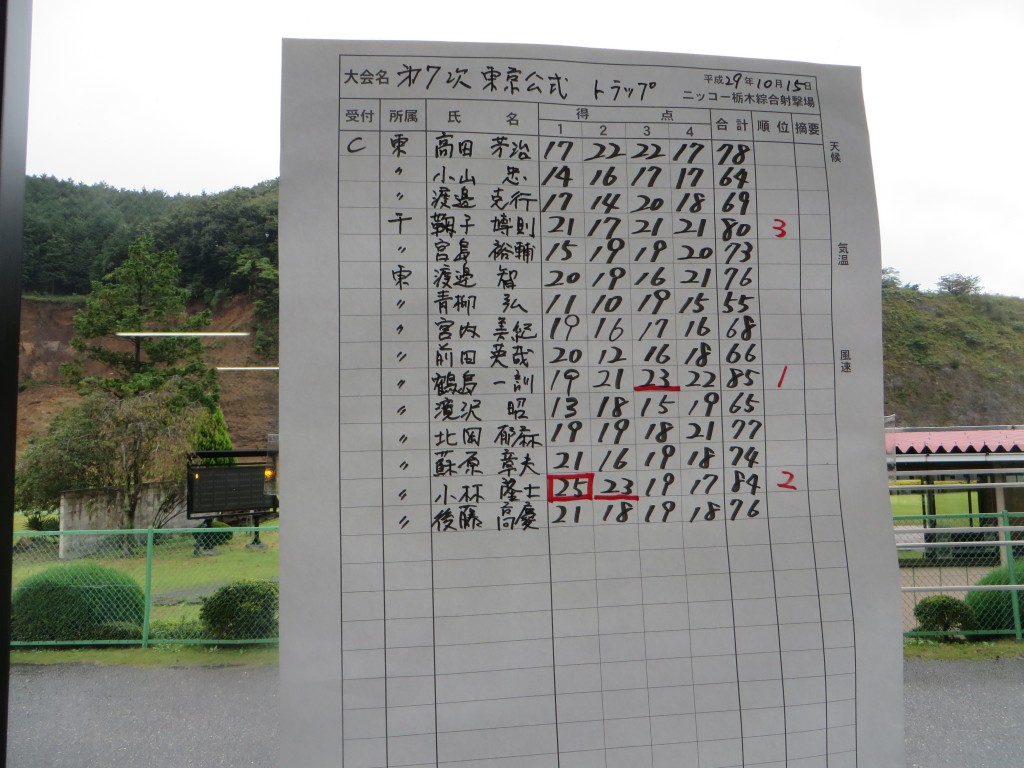 大会名 第7次 東京公式 トラップ 平成29年10月15日
ニッコー栃木綜合射撃場
受付 所属 氏 名 得 点 合計 順位 摘要
1 2 3 4
天候
C 東 高田 芳治 17 22 22 17 78
〃 小山 忠 14 16 17 17 64
〃 渡邉 克行 17 14 20 18 69
千 鞠子 博則 21 17 21 21 80 3
気温
〃 宮島 裕輔 15 19 19 20 73
東 渡邉 智 20 19 16 21 76
〃 青柳 弘 11 10 19 15 55
〃 宮内 美紀 19 16 17 16 68
風速
〃 前田 英哉 20 12 16 18 66
〃 鶴島 一訓 19 21 23 22 85 1
〃 滝沢 昭 13 18 15 19 65
〃 北岡 郁森 19 19 18 21 77
〃 蘇原 章夫 21 16 19 18 74
〃 小林 隆士 25 23 19 17 84 2
〃 後藤 高慶 21 18 19 18 76